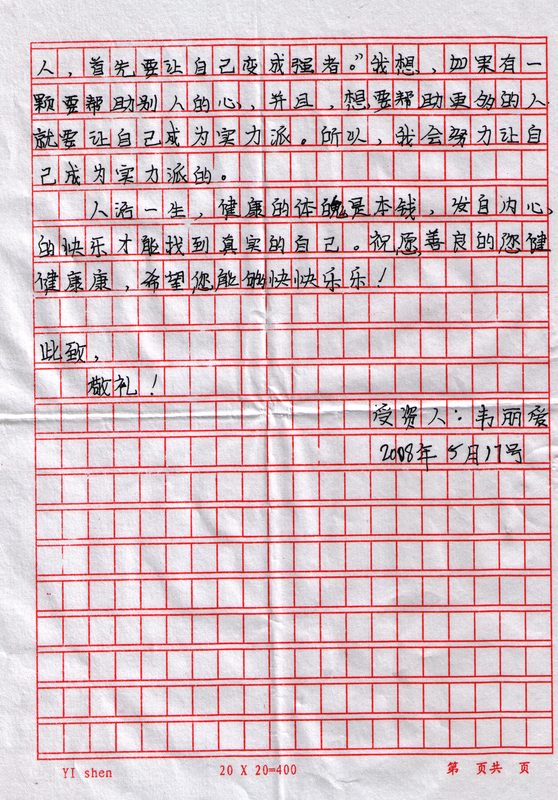 人，首先要让自己变成强者。”我想，如果有一
颗要帮助别人的心，并且，想要帮助更多的人
就要让自己成为实力派。所以，我会努力让自
己成为实力派的。
人活一生，健康的体魄是本钱，发自内心
的快乐才能找到真实的自己。祝愿善良的您健
健康康，希望您能够快快乐乐！
此致，
敬礼！
受资人：韦丽爱
2008年5月17号
YI shen 20 X 20=400 第 页共 页